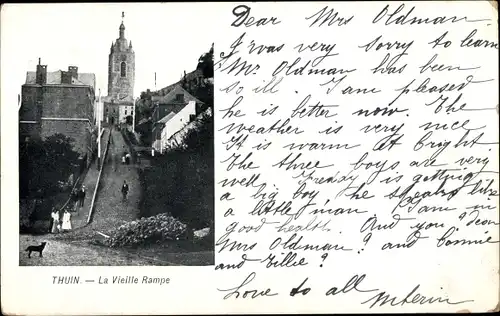 Dear Mrs Oldman
I was very sorry to learn
Mr Oldman has been
so ill. I am pleased
he is better now. The
weather is very nice
It is warm at Bright
The three boys are very
well Freddy is getting
a big boy, he speaks like
a little man. I am in
good health. And you? Dear
Mrs Oldman? and Connie
and Tillie?
Love to all
THUIN. — La Vieille Rampe